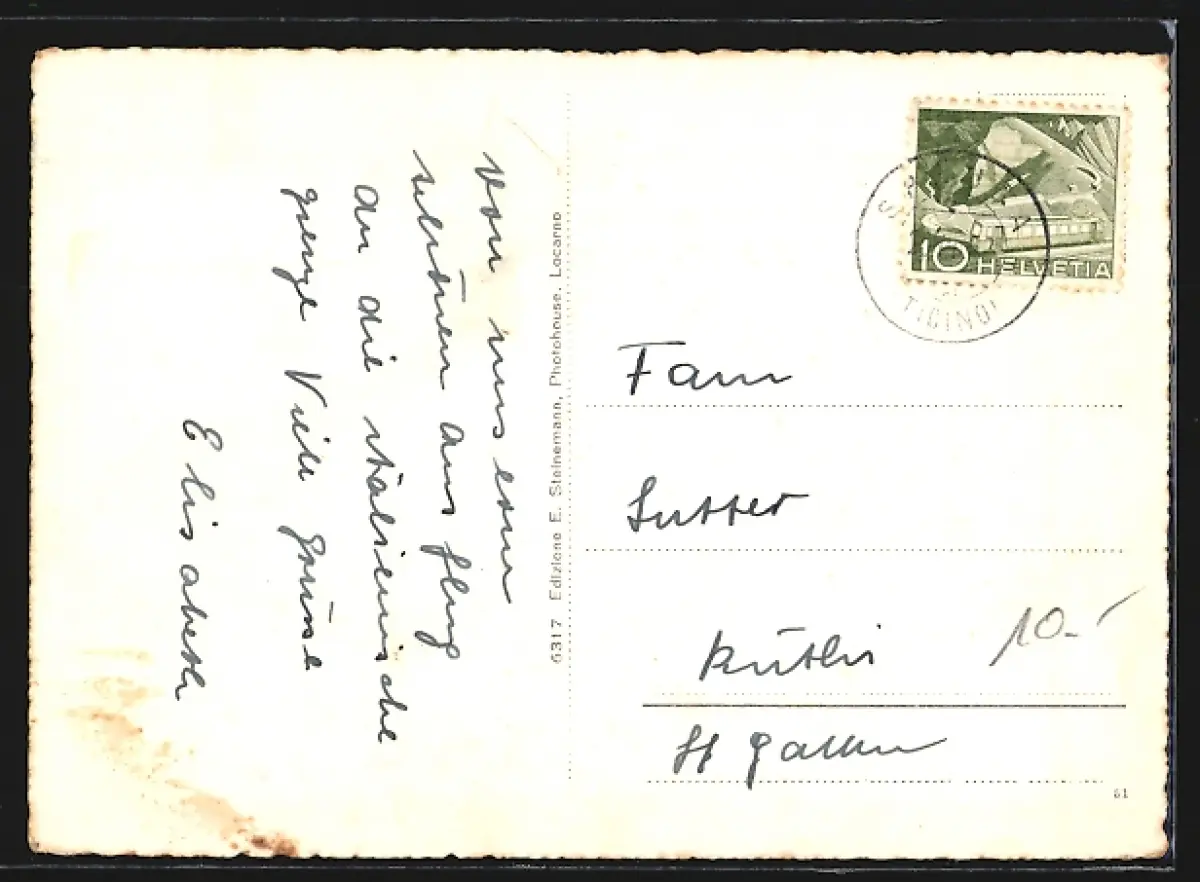 Von unserm
schönen Ausflug
an die italienische
grenze Viele grüsse
Elisabeth
6317 Edizione E. Steinemann, Photohouse, Locarno
10 HELVETIA
TICINO
Fam
Sutter
Rütli
10.-
St gallen
61